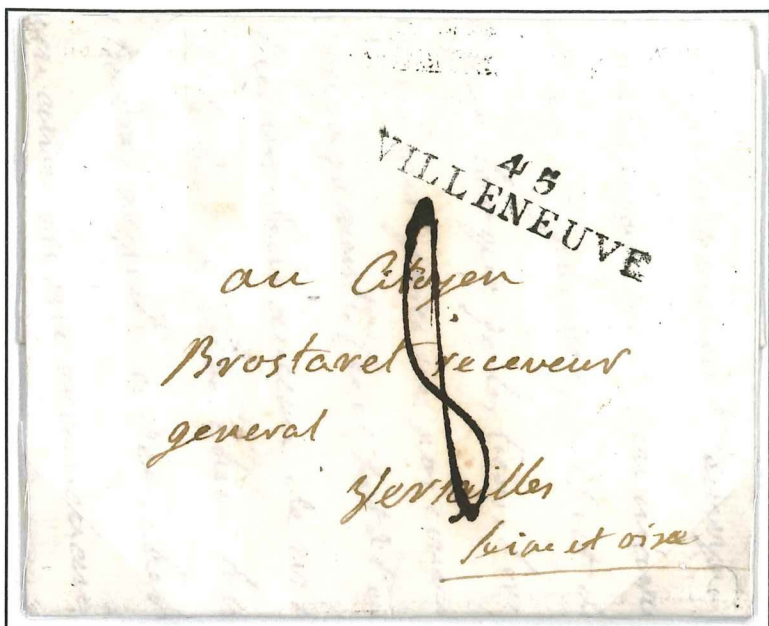 45
VILLENEUVE
8
au Citoyen
Brostaret receveur
general
Versailles
seine et oise